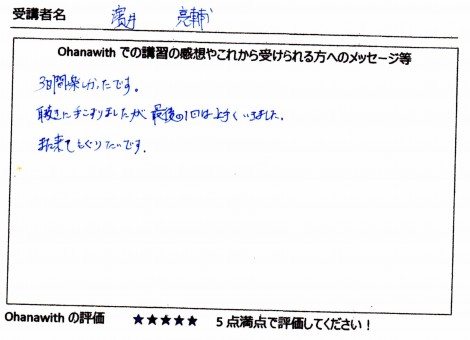 受講者名 濱井 亮輔
Ohanawith での講習の感想やこれから受けられる方へのメッセージ等
3日間楽しかったです。
耳抜きに手こずりましたが 最後の1回は上手くいきました。
また来てもぐりたいです.
Ohanawith の評価 ★★★★★ 5 点満点で評価してください！